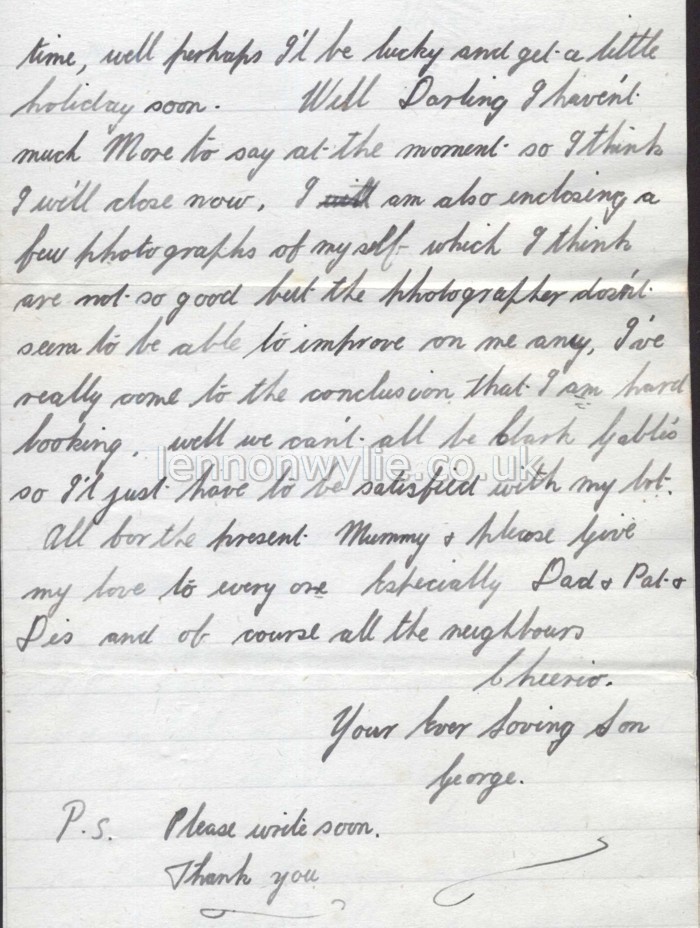 time, well perhaps I'l be lucky and get a little
holiday soon. Well Darling I haven't
much More to say at the moment so I think
I we'll close now, I will am also enclosing a
few photographs of my self which I think
are not so good but the photographer dosn't
seem to be able to improve on me any, I've
really come to the conclusion that I am hard
looking, well we can't all be Clark Gable's
lennonwylie.co.uk
so I'l just have to be satisfied with my lot.
All for the present Mummy & please Give
my love to every one Especially Dad & Pat &
Des and of course all the neighbours
Cheerio.
Your Ever Loving Son
George.
P.S. Please write soon.
Thank you